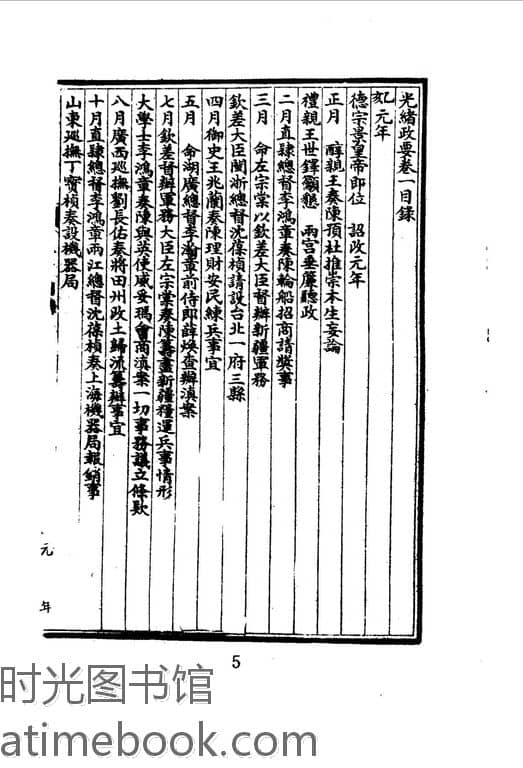 光緒政要卷一目錄
元年
德宗景皇帝即位 詔改元年
正月 醇親王奏陳預杜推崇本生妄論
禮親王世鐸籲懇 兩宮垂簾聽政
二月直隸總督李鴻章奏陳輪船招商請獎事
三月 命左宗棠以欽差大臣督辦新疆軍務
欽差大臣閩浙總督沈葆楨請設台北一府三縣
四月御史王兆蘭奏陳理財安民練兵事宜
五月 命湖廣總督李瀚章前侍郎薛煥查辦滇案
七月欽差督辦軍務大臣左宗棠奏陳籌畫新疆糧運兵事情形
大學士李鴻章奏陳與英使威妥瑪會商滇案一切事務議立條款
八月廣西巡撫劉長佑奏將田州改土歸流籌辦事宜
十月直隸總督李鴻章兩江總督沈葆楨奏上海機器局報銷事
山東巡撫丁寶楨奏設機器局
元 年
5
时光图书馆
atimebook.com